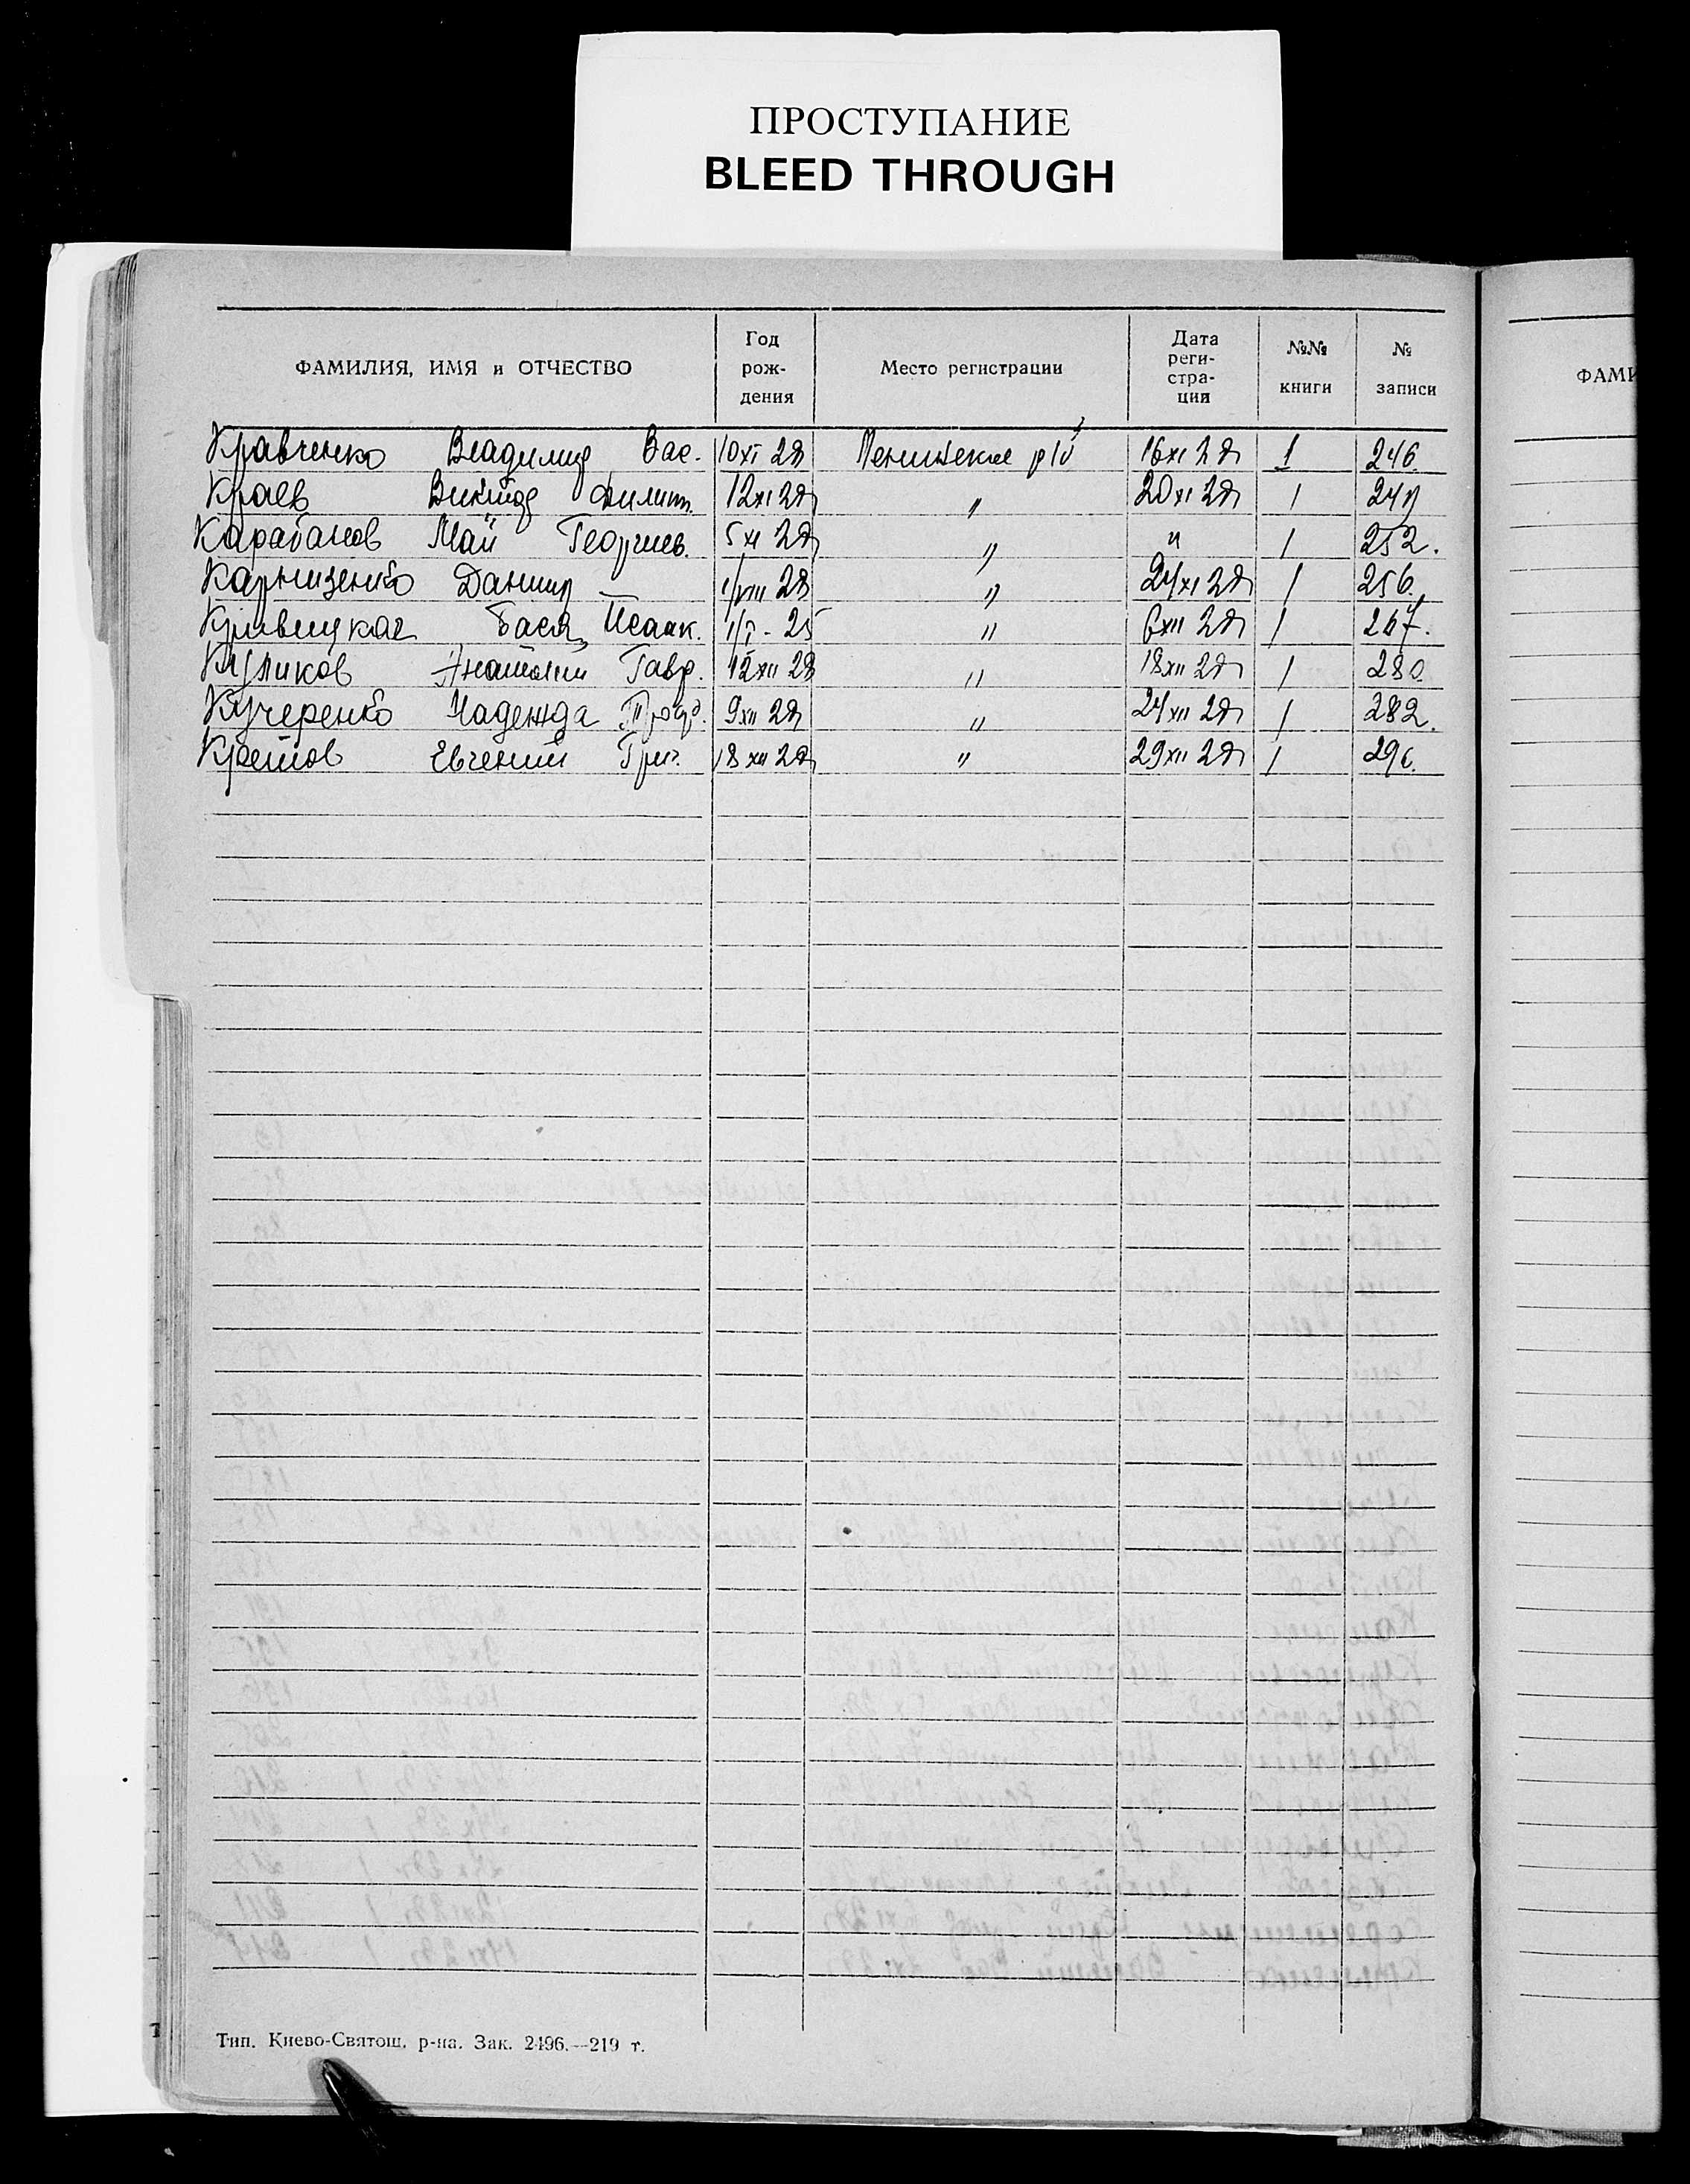 ПРОСТУПАНИЕ
BLEED THROUGH
ФАМИЛИЯ, ИМЯ и ОТЧЕСТВО
Год рож- дения
Место регистрации
Дата реги- стра- ции
№№ книги
№ записи
ФАМИ
Кравченко Владимир Вас. 10 XI 28 Ленинское р/б 16 XI 28 1 246.
Краев Виктор Филип. 12 XI 28 " 20 XI 28 1 247
Карабанов Май Георгиев. 5 XI 28 " " 1 252.
Даниил 1/VIII 28 " 24 XI 28 1 256.
Кривицкая Бася Исаак. 1/V - 25 " 6 XII 28 1 267.
Куликов Анатолий Гавр. 12 XII 28 " 18 XII 28 1 280.
Кучеренко Надежда 9 XII 28 " 24 XII 28 1 282.
Кретов Евгений Григ. 18 XII 28 " 29 XII 28 1
Тип. Киево-Святош. р-на. Зак. 2496.—219 т.